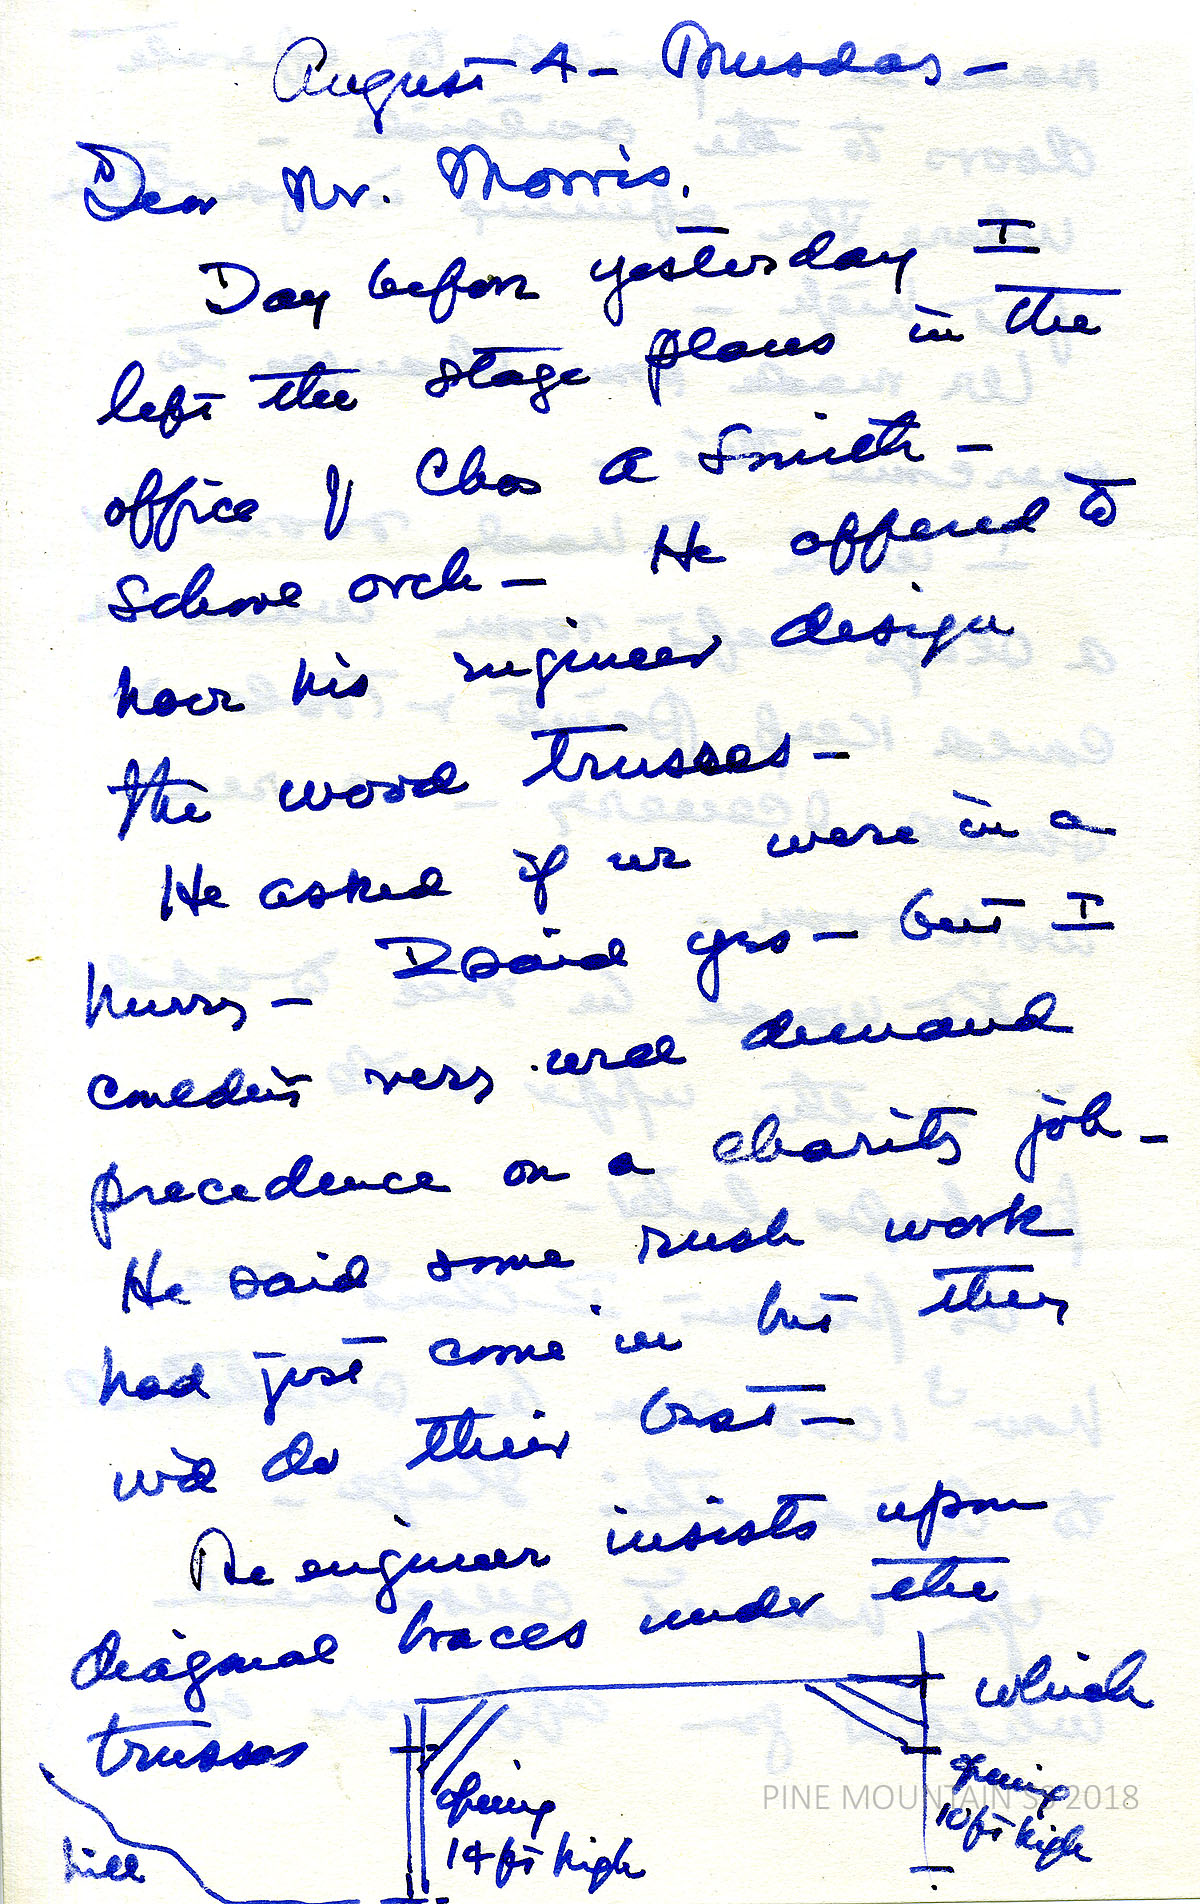 August 4 - Thursday -
Dear Mr. Morris.
Day before yesterday I
left the stage plans in the
office of Chas A Smith -
School arch - He offered to
have his engineer design
the wood trusses -
He asked if we were in a
hurry - I said yes - but I
couldn't very well demand
precedence on a charity job -
He said some rush work
had just come in but they
wid do their best -
The engineer insists upon
diagonal braces under the
trusses which
opening
14 ft high
opening
10 ft high
hill
PINE MOUNTAIN SS 2018